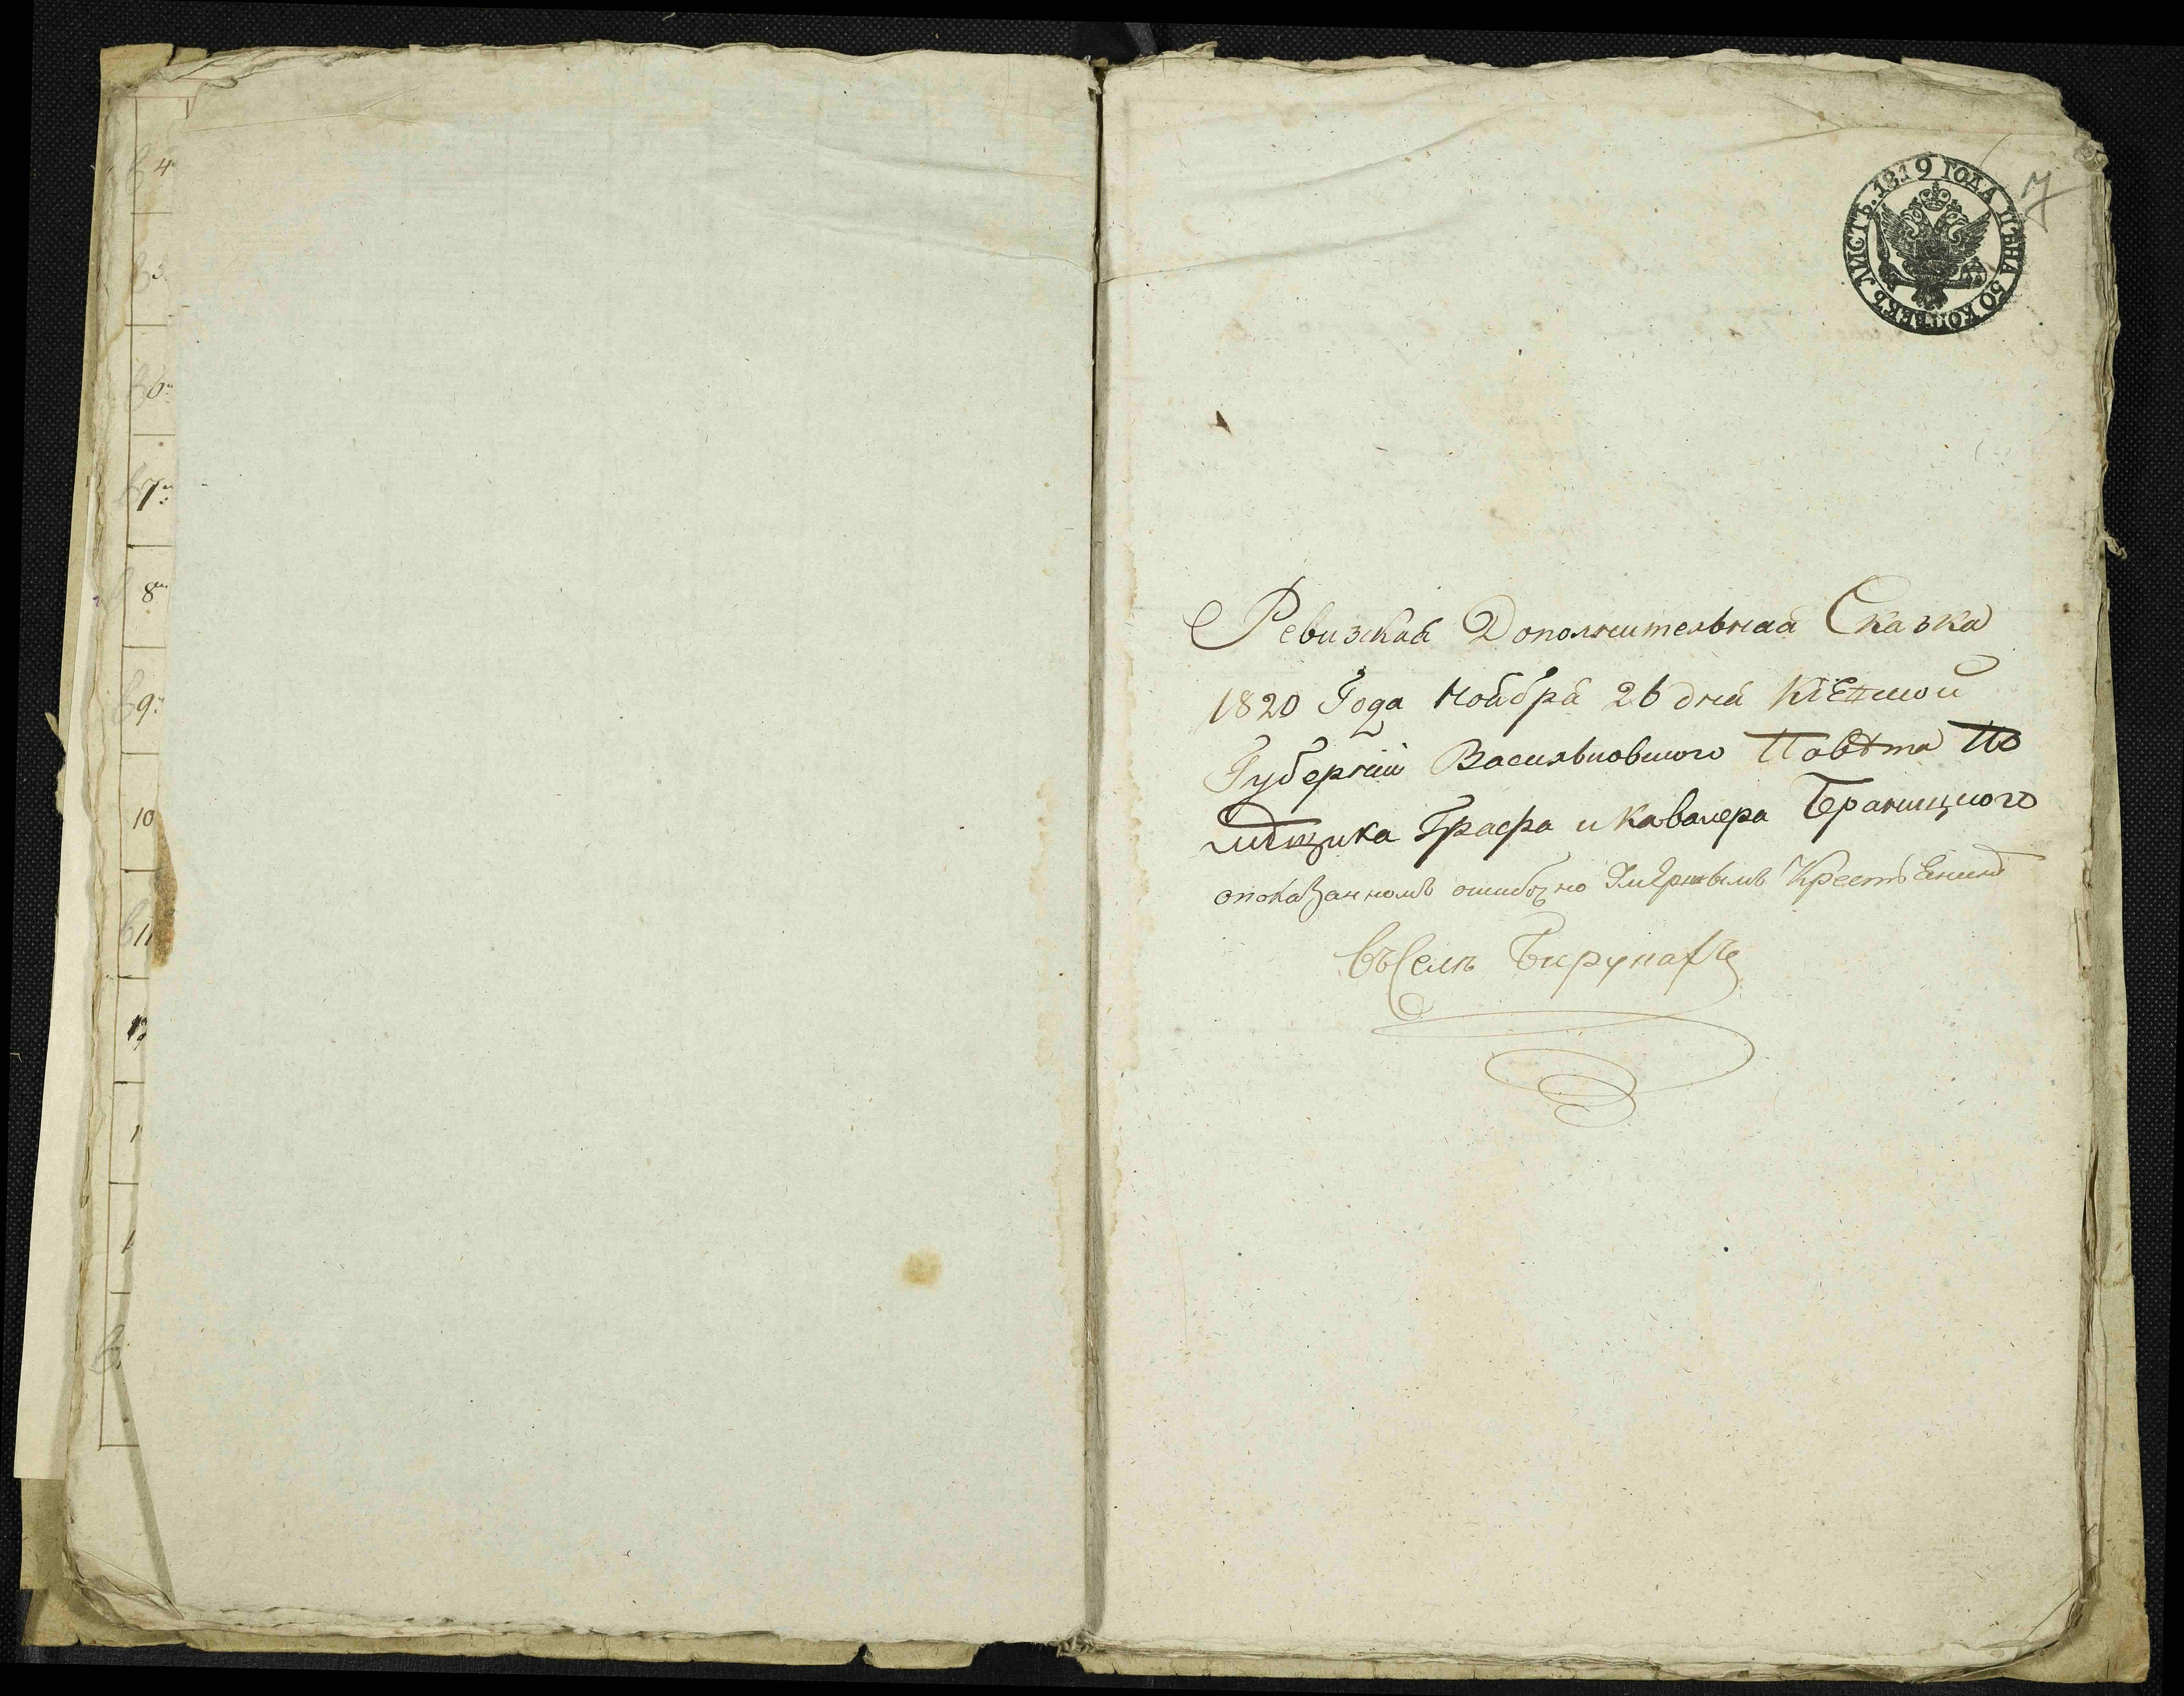 4
5
6
7
8
9
10
11
12
ЛИСТЪ. 1819 ГОДА ЦѢНА 50 КОПѢЕКЪ
7
Ревизкая Дополнительная Сказка
1820 Года Ноября 26 дня Кіевской
Губернии Васильковского Повѣта По
мѣщика Графа и Кавалера Браницкого
опоказанномъ ошибочно Умершымъ Крестьенинѣ
въ Селѣ Бирукахъ